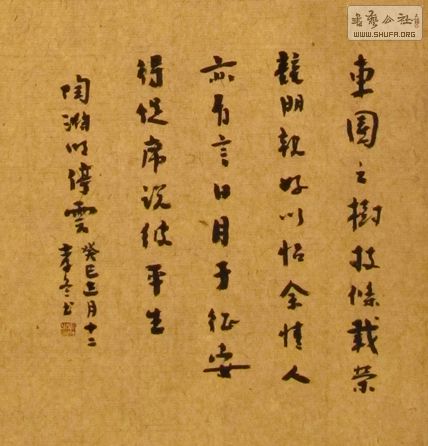 書藝公社
WWW.SHUFA.ORG
東園之樹枝條載榮
競朋親好以怡余情人
亦有言日月于征安
得促席说彼平生
陶渊明停雲
癸巳正月十二
书